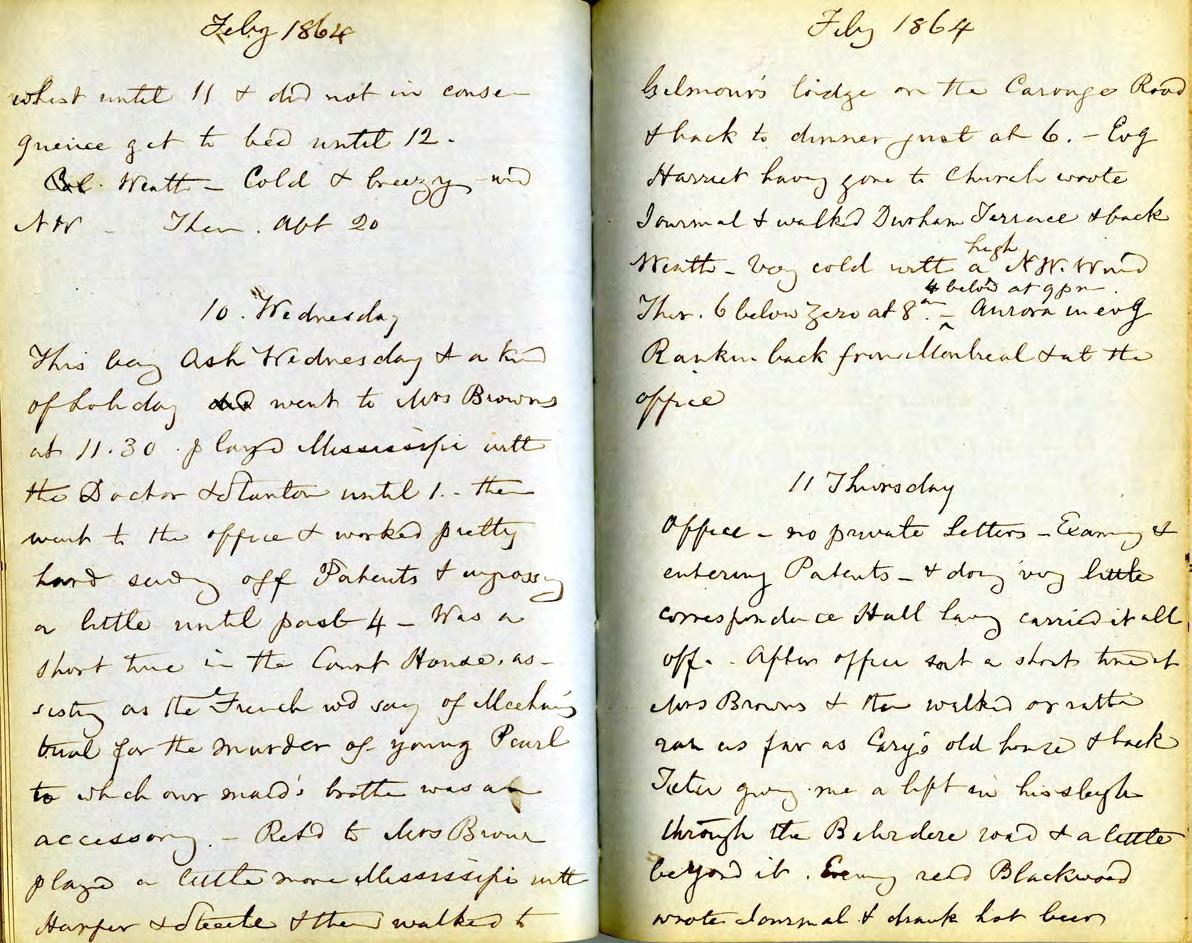 Feby 1864
whist until 11 & did not in conse-
quence get to bed until 12.
Weath - Cold & breezy - wd
NW - Ther. abt 20
10. Wednesday
This being Ash Wednesday & a kind
of holiday did went to Mrs Browns
at 11.30. played Mississipi with
the Doctor & Stanton until 1. - then
went to the office & worked pretty
hard sendg off Patents & engrossg
a little until past 4 - Was a
short time in the Court House, as-
sistg as the French wd say of
trial for the murder of young Pearl
to which our maid's brother was an
accessory. - Retd to Mrs Browns
played a little more Mississipi with
Harper & Steele & then walked to
Feby 1864
Gilmour's bridge on the Carouge Road
& back to dinner just at 6. - Evg
Harriet having gone to Church wrote
Journal & walked Durham Terrace & back
Weath - Very cold with a high N.W. Wind
Ther. 6 below Zero at 8 am. - 4 below at 9 pm. Aurora in evg
Rankin back from Montreal & at the
office
11 Thursday
Office - no private Letters - Examg &
entering Patents - & doing very little
correspondence Hall having carried it all
off. - After office sat a short time at
Mrs Browns & then walked or rather
ran as far as Cary's old house & back
giving me a lift in his sleigh
through the Belvidere road & a little
beyond it. Eveng read Blackwood
wrote Journal & drank hot beer